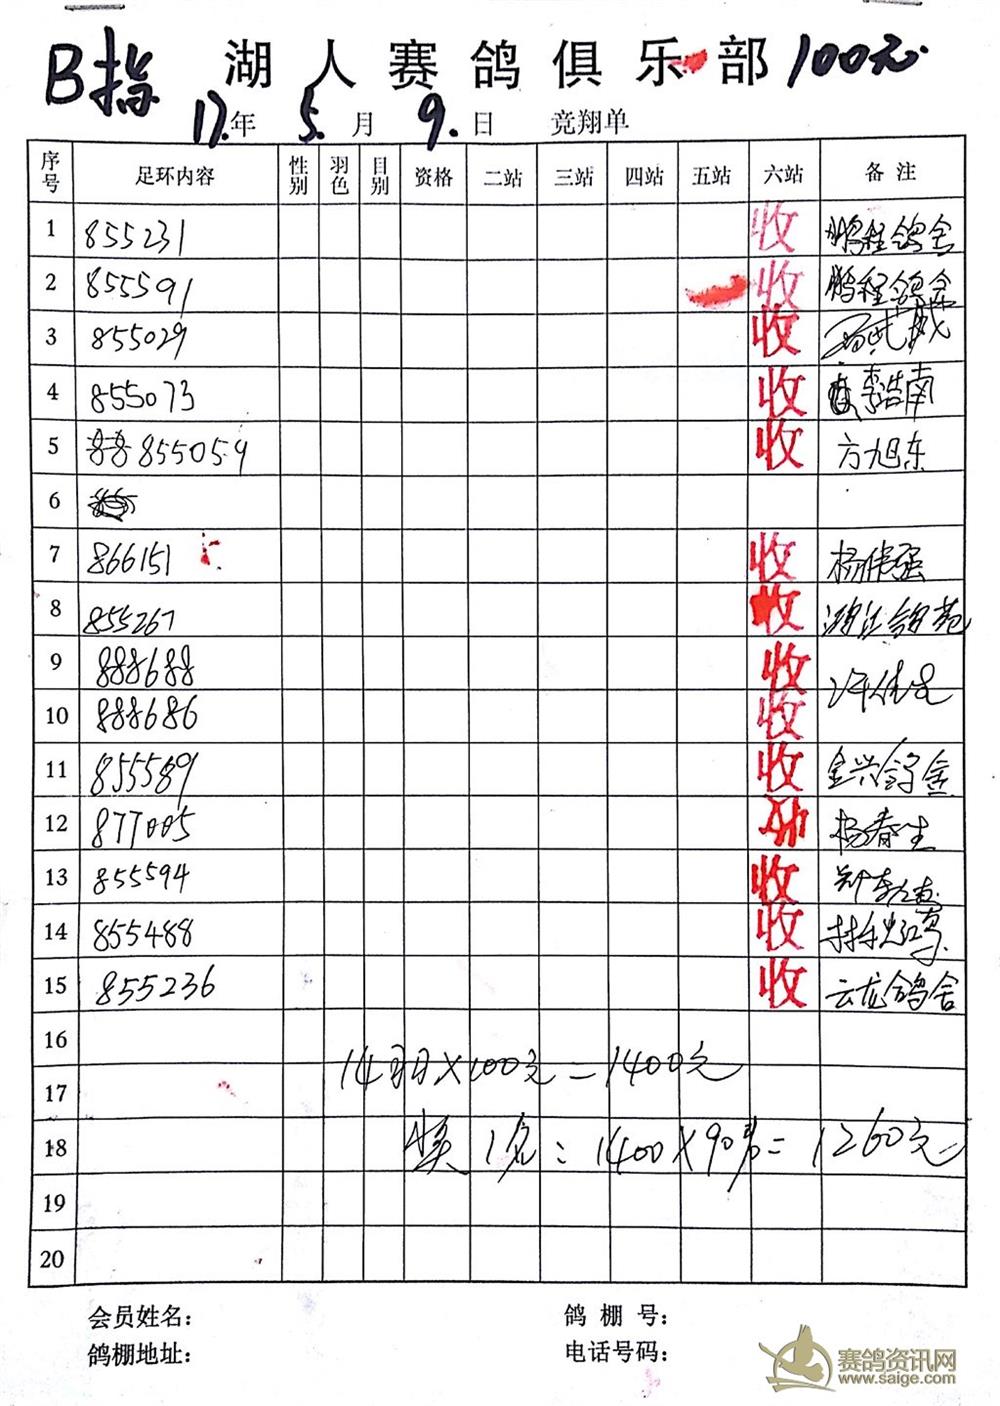 B指 湖人赛鸽俱乐部 100元
17.年 5.月 9.日 竞翔单
序号 足环内容 性别 羽色 目别 资格 二站 三站 四站 五站 六站 备注
1 855231 收 鹏程鸽舍
2 855591 收 鹏程鸽舍
3 855029 收
4 855073 收 李浩南
5 855059 收 方旭东
6
7 866151 收 杨伟强
8 855267 收 鸽苑
9 888688 收
10 888686 收
11 855589 收 金兴鸽舍
12 877005 收 杨春生
13 855594 收
14 855488 收
15 855236 收 云龙鸽舍
16
14羽×100元=1400元
17
18 奖1名:1400×90%=1260元
19
20
会员姓名: 鸽棚号:
鸽棚地址: 电话号码:
赛鸽资讯网
www.saige.com